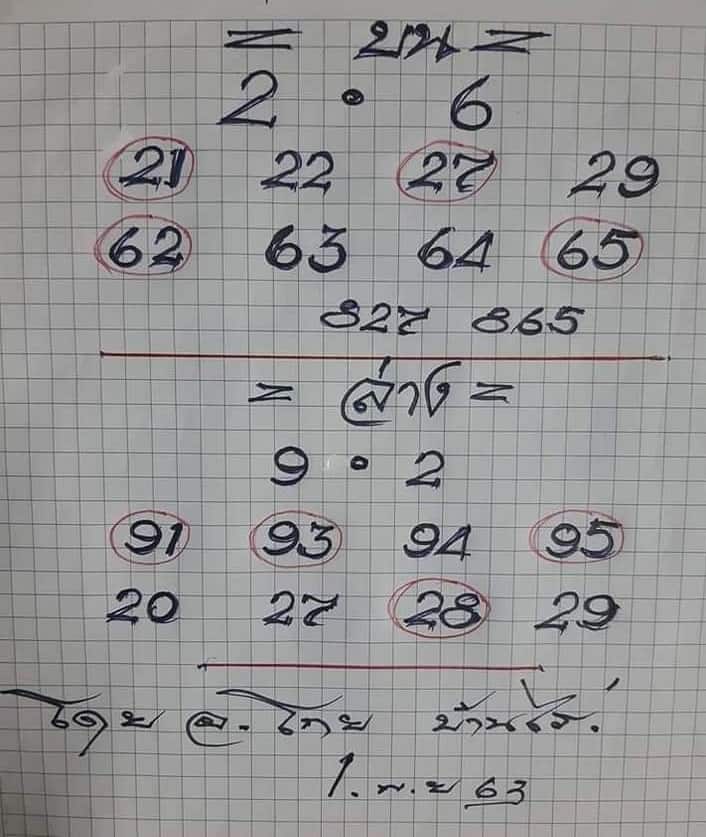 = บน =
2 • 6
21 22 27 29
62 63 64 65
827 865
= ล่าง =
9 • 2
91 93 94 95
20 27 28 29
โดย อ. โทย บ้านไร่.
1. พ.ย 63